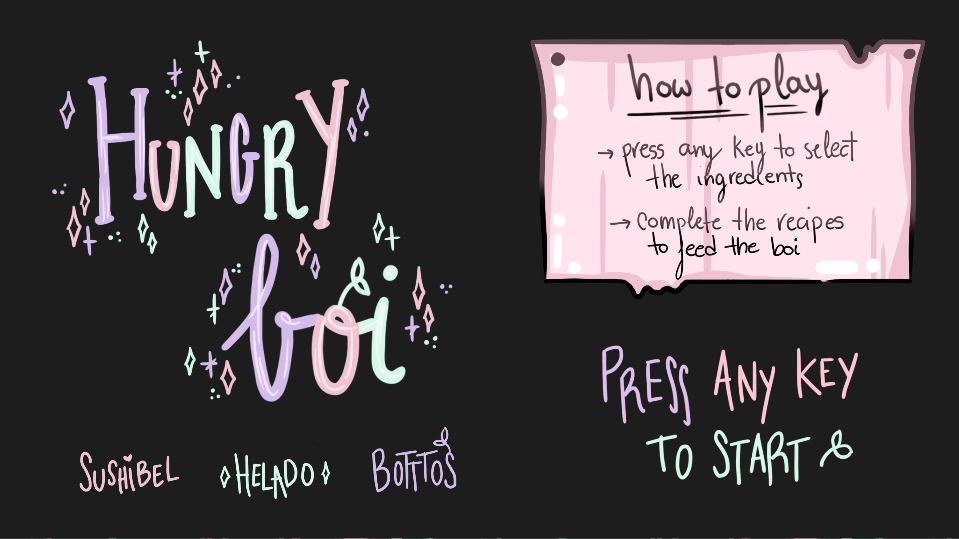 HUNGRY
boi
SUSHIBEL
HELADO
BOTITOS
how to play
→ press any key to select
the ingredients
→ complete the recipes
to feed the boi
PRESS ANY KEY
TO START